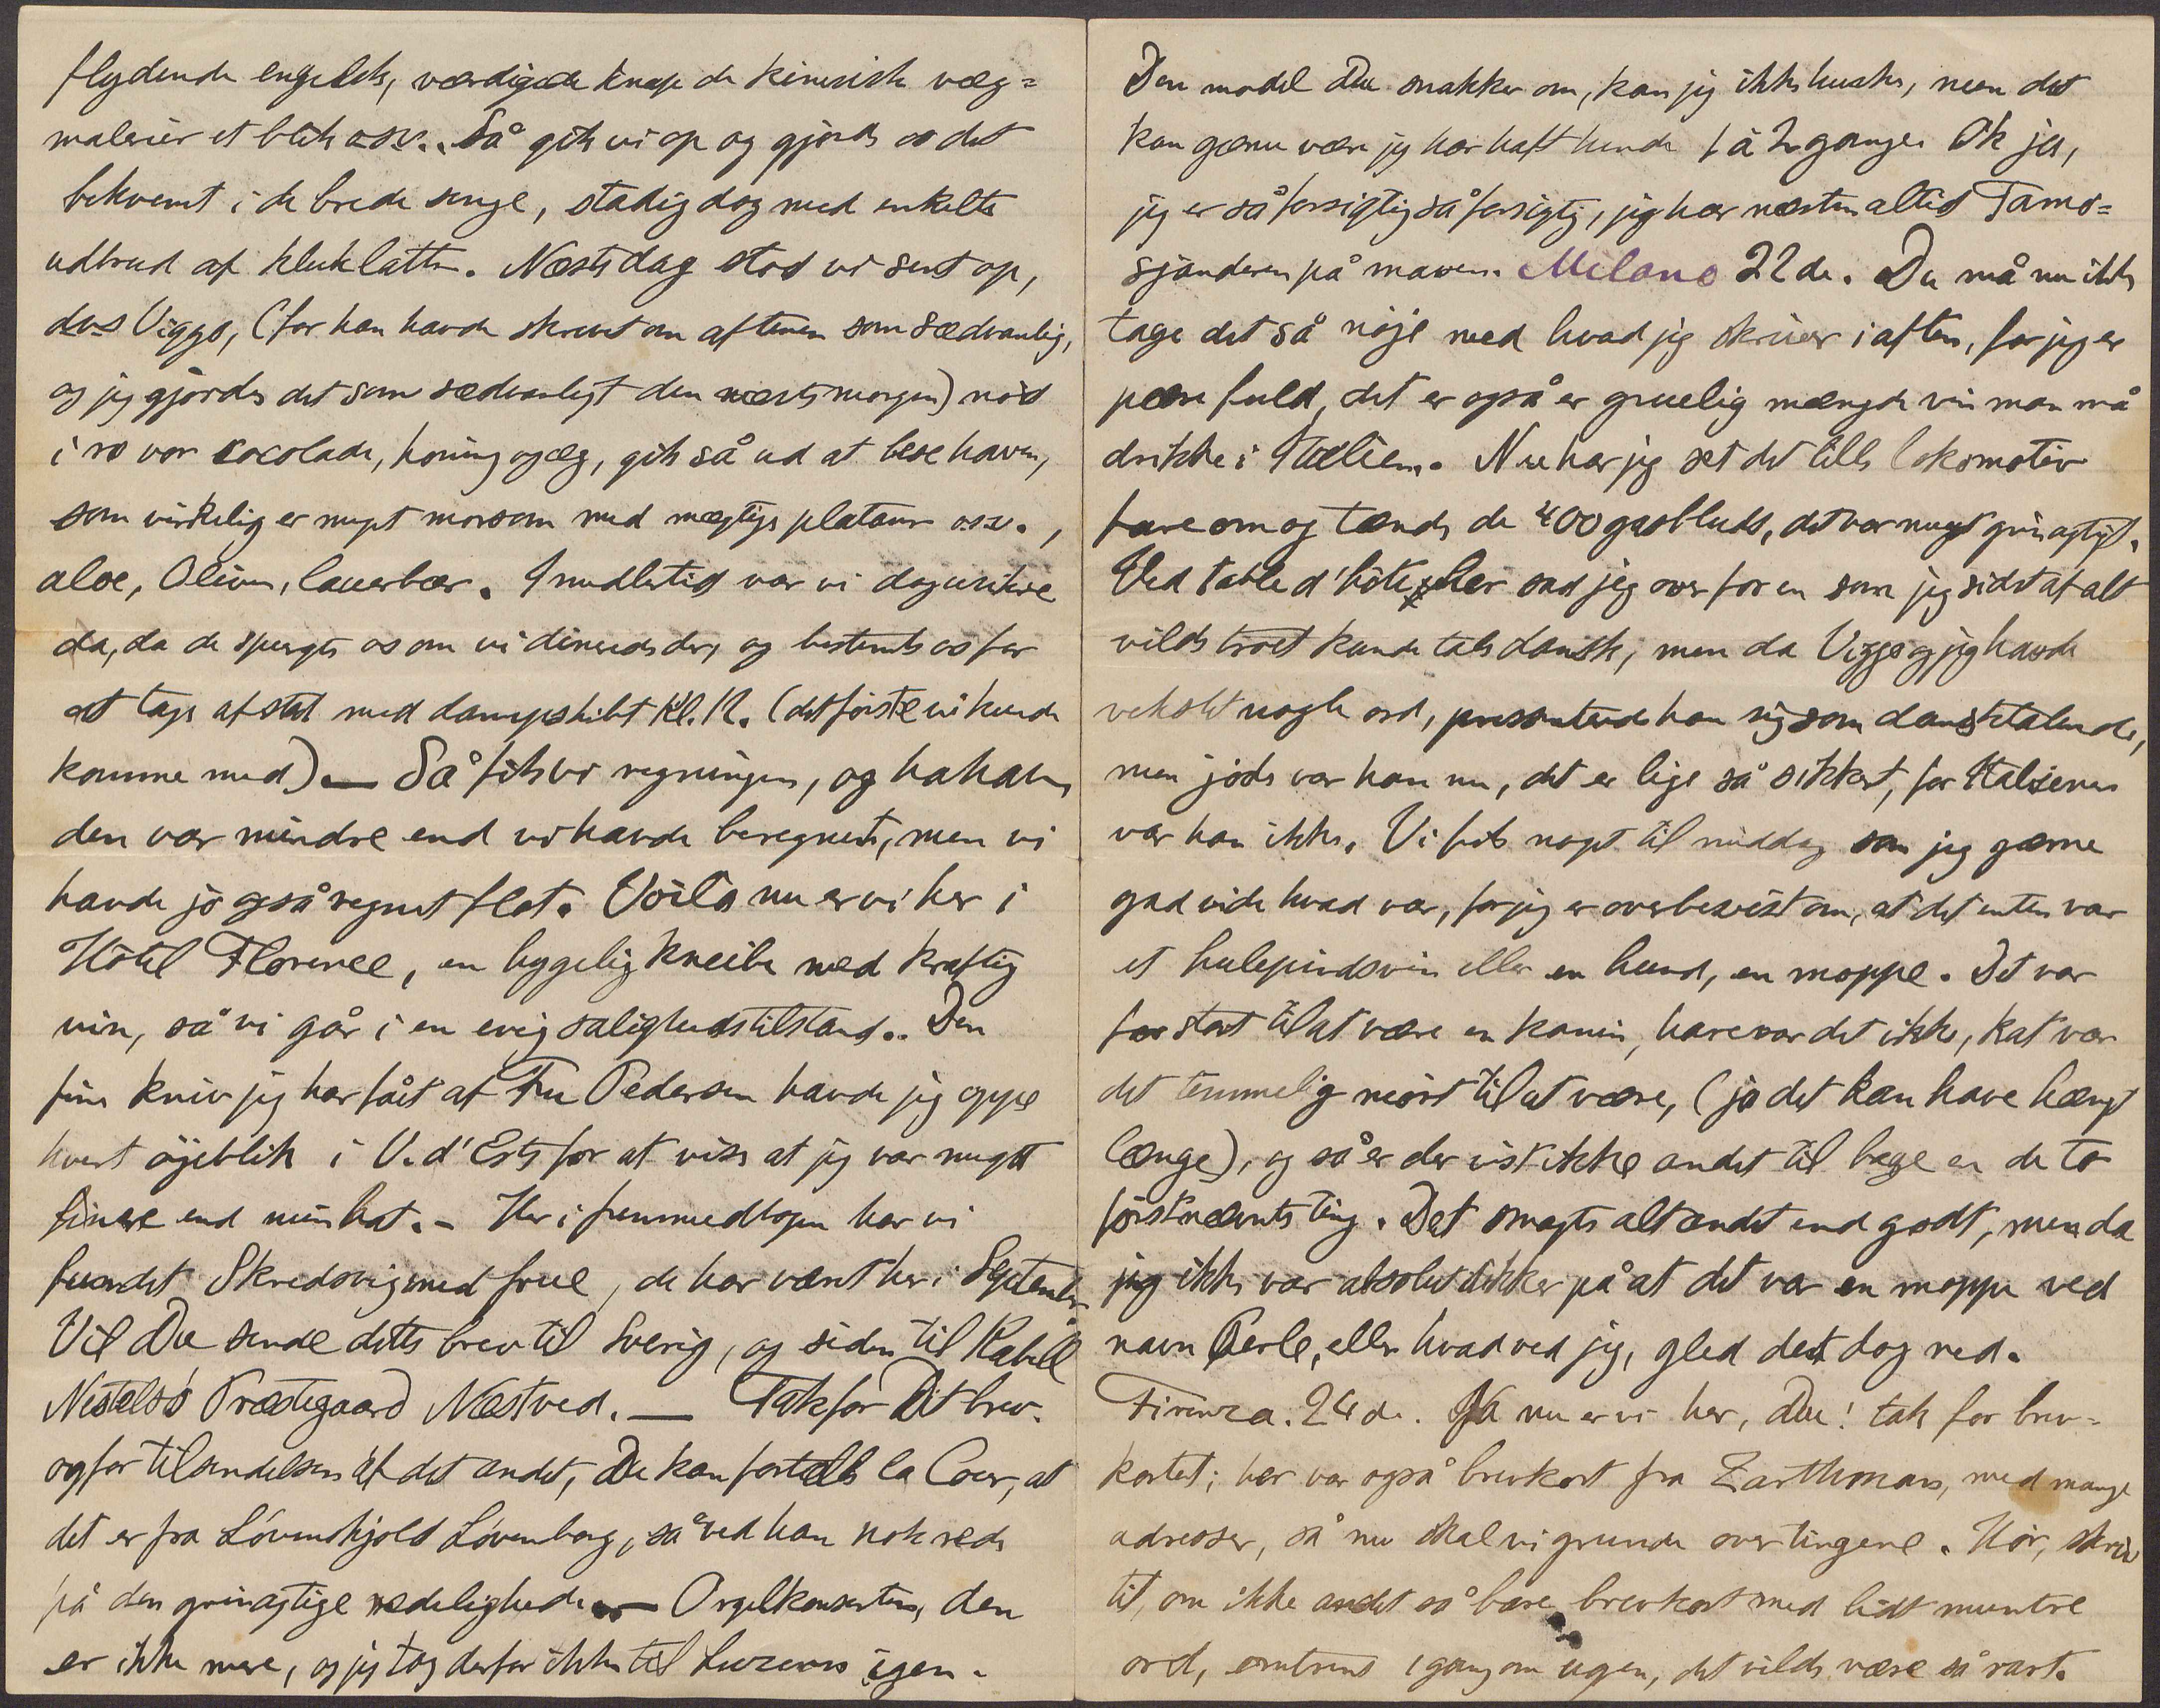 flydende engelsk, værdigede knap de kinesiske væg=
malerier et blik osv.. Så gik vi op og gjorde os det
bekvemt i de brede senge, stadig dog med enkelte
udbrud af kluklatter. Næste dag stod vi sent op,
dvs Viggo, (for han havde skrevet om aftenen som sædvanlig,
og jeg gjorde det som sædvanligt den næste morgen) nöd
i ro vor cocolade, honing og æg, gik så ud at bese haven,
som virkelig er nuget morsom med mægtige plataner osv.,
aloe, Oliven, lauerbær. Imidlertid var vi dog usikre
da, da de spurgte os om vi dinerede der, og bestemte os for
at tage afsted med dampskibet Kl. 12. (det förste vi kunde
komme med) — Så fik vi regningen, og hahaha,
den var mindre end vi havde beregnet, men vi
havde jo også regnet flot. Voila nu er vi her i
Hôtel Florence, en hyggelig kneibe med kraftig
vin, så vi går i en evig salighedstilstand.. Den
fine kniv jeg har fåt af Fru Pedersen havde jeg oppe
hvert öjeblik i V. d'Este for at vise at jeg var nuget
finere end min hat. - Her i fremmedbogen har vi
fundet Skredsvig med frue, de har været her i September
Vil Du sende dette brev til Sverig, og siden til Rabell
Nestelsö Præstegaard Næstved. — Tak for Dit brev.
og for tilsendelsen af det andet, Du kan fortælle la Cour, at
det er fra Lövenskjold Lövenborg, så ved han nok rede
på den grinagtige nedelighed — Orgelkonserten, den
er ikke mere, og jeg tog derfor ikke til Luzern igen.
Den model Du snakker om, kan jeg ikke huske, men det
kan gærne være jeg har haft hende 1 à 2 gange. Ak ja,
jeg er så forsigtig så forsigtig, jeg har næsten altid Tamo=
sjanderen på maven. Milano 22de. Du må nu ikke
tage det så nöje med hvad jeg skriver i aften, for jeg er
pærefuld, det er også er gruelig mængde vin man må
drikke i Italien. Nu har jeg set det lille lokomotiv
fare om og tænde de 400 gasblus, det var nuget grinagtigt.
Ved table d'hôte her sad jeg over for en som jeg sidst af alt
vilde troet kunde tale dansk, men da Viggo og jeg havde
vekslet nogle ord, presenterede han sig som dansktalende,
men jöde var han nu, det er lige så sikkert, for Italiener
var han ikke. Vi fik noget til middag som jeg gærne
gad vide hvad var, for jeg er overbevist om, at det enten var
et hulepindsvin eller en hund, en moppe. Det var
for stort til at være en kanin, hare var det ikke, kat var
det temmelig mört til at være, (ja det kan have hængt
længe), og så er der vist ikke andet til bage en de to
förstnævnte ting. Det smagte alt andet end godt, men da
jeg ikke var absolut sikker på at det var en moppe ved
navn Perle, eller hvad ved jeg, gled det dog ned.
Firenze. 24de. Ja nu er vi her, Du! tak for brev=
kortet; her var også brevkort fra Zarthmann, med mange
adresser, så nu skal vi grunde over tingene. Hör, skriv
tit, om ikke andet så bare brevkort med lidt muntre
ord, omtrent 1 gang om ugen, det vilde være så rart.